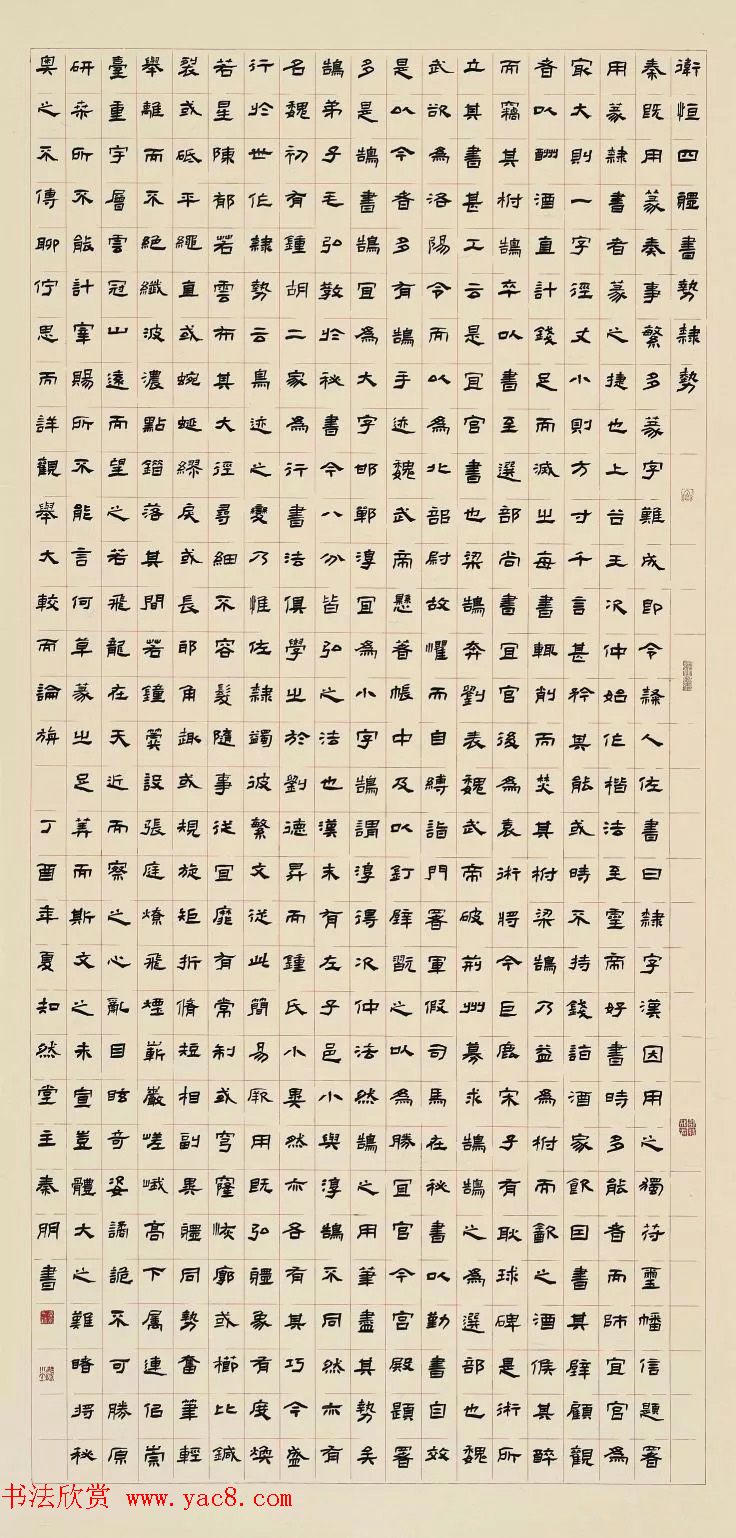 衛恒四體書勢隸勢
秦既用篆奏事繁多篆字難成即令隸人佐書曰隸字漢因用之獨符璽幡信題署
用篆隸書者篆之捷也上谷王次仲始作楷法至靈帝好書時多能者而師宜官為
最大則一字徑丈小則方寸千言甚矜其能或時不持錢詣酒家飲因書其壁顧觀
者以酬酒直計錢足而滅之每書輒削而焚其柎梁鵠乃益為柎而飲之酒候其醉
而竊其柎鵠卒以書至選部尚書宜官後為袁術將今巨鹿宋子有耿球碑是術所
立其書甚工云是宜官書也梁鵠奔劉表魏武帝破荊州募求鵠鵠之為選部也魏
武欲為洛陽令而以為北部尉故懼而自縛詣門署軍假司馬在秘書以勤書自效
是以今者多有鵠手迹魏武帝懸著帳中及以釘壁翫之以為勝宜官今宮殿題署
多是鵠書鵠宜為大字邯鄲淳宜為小字鵠謂淳得次仲法然鵠之用筆盡其勢矣
鵠弟子毛弘教於秘書今八分皆弘之法也漢末有左子邑小與淳鵠不同然亦有
名魏初有鍾胡二家為行書法俱學之於劉德昇而鍾氏小異然亦各有其巧今盛
行於世作隸勢云鳥迹之變乃惟佐隸蠲彼繁文從此簡易厥用既弘體象有度煥
若星陳郁若雲布其大徑尋細不容髮隨事從宜靡有常制或穹窿恢廓或櫛比鍼
裂或砥平繩直或蜿蜒繆戾或長邪角趣或規旋矩折脩短相副異體同勢奮筆輕
舉離而不絕纖波濃點錯落其間若鐘簴設張庭燎飛煙嶄巖嵯峨高下属連侣崇
臺重字層雲冠山遠而望之若飛龍在天近而察之心亂目眩奇姿譎詭不可勝原
研桑所不能計宰賜所不能言何草篆之足筭而斯文之未宣豈體大之難睹將秘
奧之不傳聊佇思而詳觀舉大較而論旃 丁酉年夏知然堂主秦朋書
书法欣赏 www.yac8.com